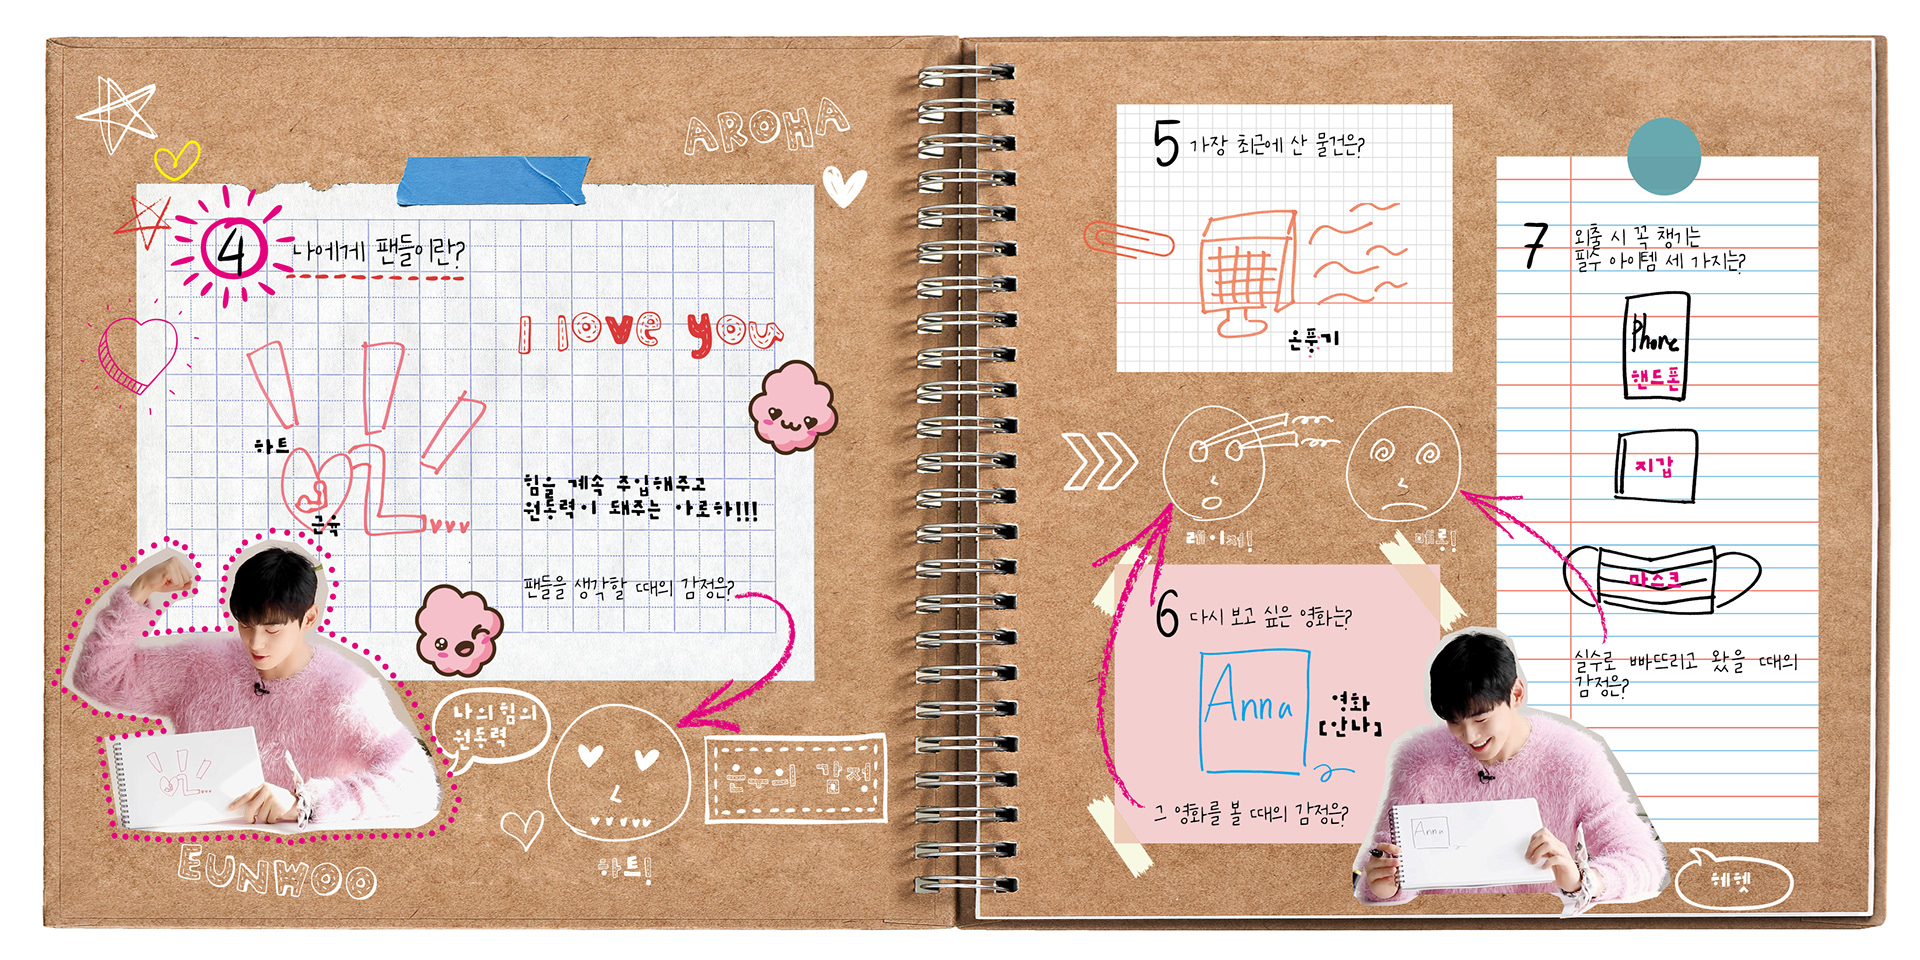 AROHA
4 나에게 팬들이란?
I love you
하트
근육
힘을 계속 주입해주고
원동력이 돼주는 아로하!!!
팬들을 생각할 때의 감정은?
나의 힘의
원동력
은우의 감정
하트!
EUNWOO
5 가장 최근에 산 물건은?
온풍기
레이저!
메롱!
6 다시 보고 싶은 영화는?
Anna
영화
[안나]
그 영화를 볼 때의 감정은?
7 외출 시 꼭 챙기는
필수 아이템 세 가지는?
Phone
핸드폰
지갑
마스크
실수로 빠뜨리고 왔을 때의
감정은?
Anna
헤헷